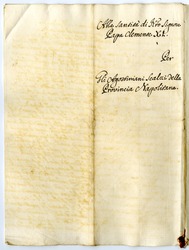 Alla Santità di N̄ro Signore
Papa Clemente XI.
Per
Gli Agostiniani Scalzi della
Provincia Napolitana.